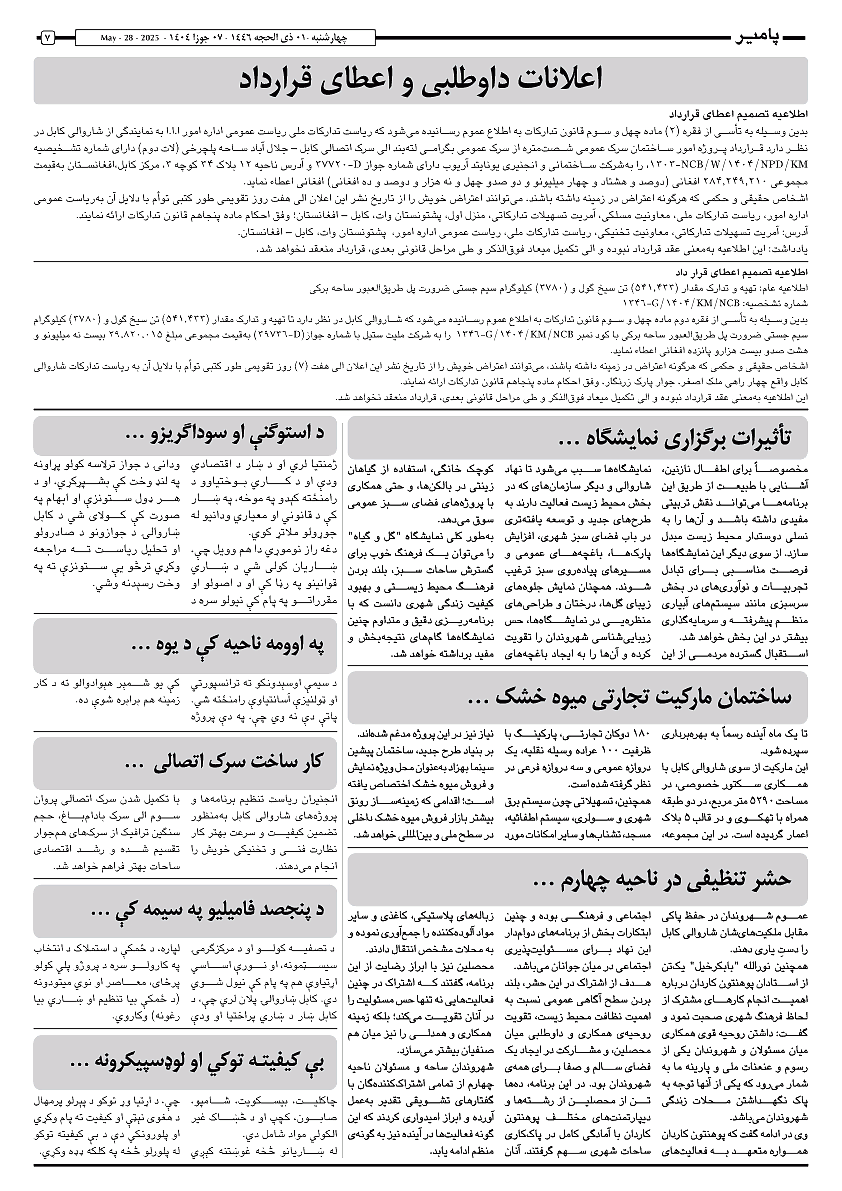 پامیر
چهارشنبه ۰۱ ذی الحجه ۱۴۴۶ ۰۷ جوزا ۱۴۰۴ - May - 28 - 2025
۷
اعلانات داوطلبی و اعطای قرارداد
اطلاعیه تصمیم اعطای قرارداد
بدین وسیله به تأسی از فقره (۲) ماده چهل و سوم قانون تدارکات به اطلاع عموم رسانیده می‌شود که ریاست تدارکات ملی ریاست عمومی اداره امور ا.ا.ا به نمایندگی از شاروالی کابل در
نظر دارد قرارداد پروژه امور ساختمان سرک عمومی شصت‌متره از سرک عمومی بگرامی لته‌بند الی سرک اتصالی کابل – جلال آباد ساحه پلچرخی (لات دوم) دارای شماره تشخیصیه
۱۳۰۳-NCB/W/۱۴۰۴/NPD/KM، را به‌شرکت ساختمانی و انجنیری یونایتد آریوب دارای شماره جواز D-۳۷۷۲۰ و آدرس ناحیه ۱۲ بلاک ۳۴ کوچه ۳، مرکز کابل،افغانستان به‌قیمت
مجموعی ۲۸۴,۲۴۹,۲۱۰ افغانی (دوصد و هشتاد و چهار میلیونو و دو صدو چهل و نه هزار و دوصد و ده افغانی) افغانی اعطاء نماید.
اشخاص حقیقی و حکمی که هرگونه اعتراض در زمینه داشته باشند. می‌توانند اعتراض خویش را از تاریخ نشر این اعلان الی هفت روز تقویمی طور کتبی توأم با دلایل آن به‌ریاست عمومی
اداره امور، ریاست تدارکات ملی، معاونیت مسلکی، آمریت تسهیلات تدارکاتی، منزل اول، پشتونستان وات، کابل – افغانستان؛ وفق احکام ماده پنجاهم قانون تدارکات ارائه نمایند.
آدرس: آمریت تسهیلات تدارکاتی، معاونیت تخنیکی، ریاست تدارکات ملی، ریاست عمومی اداره امور، پشتونستان وات، کابل – افغانستان.
یادداشت: این اطلاعیه به‌معنی عقد قرارداد نبوده و الی تکمیل میعاد فوق‌الذکر و طی مراحل قانونی بعدی، قرارداد منعقد نخواهد شد.
اطلاعیه تصمیم اعطای قرار داد
اطلاعیه عام: تهیه و تدارک مقدار (۵۴۱,۴۳۳) تن سیخ گول و (۳۷۸۰) کیلوگرام سیم جستی ضرورت پل طریق‌العبور ساحه برکی
شماره تشخصیه: ۱۳۴۶-G/۱۴۰۴/KM/NCB
بدین وسیله به تأسی از فقره دوم ماده چهل و سوم قانون تدارکات به اطلاع عموم رسانیده می‌شود که شاروالی کابل در نظر دارد تا تهیه و تدارک مقدار (۵۴۱,۴۳۳) تن سیخ گول و (۳۷۸۰) کیلوگرام
سیم جستی ضرورت پل طریق‌العبور ساحه برکی با کود نمبر ۱۳۴۶-G/۱۴۰۴/KM/NCB را به شرکت ملیت ستیل با شماره جواز(D-۳۹۷۳۶) به‌قیمت مجموعی مبلغ ۲۹.۸۲۰.۰۱۵ بیست نه میلیونو و
هشت صدو بیست هزارو پانزده افغانی اعطاء نماید.
اشخاص حقیقی و حکمی که هرگونه اعتراض در زمینه داشته باشند، می‌توانند اعتراض خویش را از تاریخ نشر این اعلان الی هفت (۷) روز تقویمی طور کتبی توأم با دلایل آن به ریاست تدارکات شاروالی
کابل واقع چهار راهی ملک اصغر، جوار پارک زرنگار، وفق احکام ماده پنجاهم قانون تدارکات ارائه نمایند.
این اطلاعیه به‌معنی عقد قرارداد نبوده و الی تکمیل میعاد فوق‌الذکر و طی مراحل قانونی بعدی، قرارداد منعقد نخواهد شد.
تأثیرات برگزاری نمایشگاه ...
مخصوصاً برای اطفال نازنین،
آشنایی با طبیعت از طریق این
برنامه‌ها می‌تواند نقش تربیتی
مفیدی داشته باشد و آن‌ها را به
نسلی دوستدار محیط زیست مبدل
سازد. از سوی دیگر این نمایشگاه‌ها
فرصت مناسبی برای تبادل
تجربیات و نوآوری‌های در بخش
سرسبزی مانند سیستم‌های آبیاری
منظم پیشرفته و سرمایه‌گذاری
بیشتر در این بخش خواهد شد.
استقبال گسترده مردمی از این
نمایشگاه‌ها سبب می‌شود تا نهاد
شاروالی و دیگر سازمان‌های که در
بخش محیط زیست فعالیت دارند به
طرح‌های جدید و توسعه یافته‌تری
در باب فضای سبز شهری، افزایش
پارک‌ها، باغچه‌های عمومی و
مسیرهای پیاده‌روی سبز ترغیب
شوند. همچنان نمایش جلوه‌های
زیبای گل‌ها، درختان و طراحی‌های
منظره‌یی در نمایشگاه‌ها، حس
زیبایی‌شناسی شهروندان را تقویت
کرده و آن‌ها را به ایجاد باغچه‌های
کوچک خانگی، استفاده از گیاهان
زینتی در بالکن‌ها، و حتی همکاری
با پروژه‌های فضای سبز عمومی
سوق می‌دهد.
به‌طور کلی نمایشگاه "گل و گیاه"
را می‌توان یک فرهنگ خوب برای
گسترش ساحات سبز، بلند بردن
فرهنگ محیط زیستی و بهبود
کیفیت زندگی شهری دانست که با
برنامه‌ریزی دقیق و متداوم چنین
نمایشگاه‌ها گام‌های نتیجه‌بخش و
مفید برداشته خواهد شد.
ساختمان مارکیت تجارتی میوه خشک ...
تا یک ماه آینده رسماً به بهره‌برداری
سپرده شود.
این مارکیت از سوی شاروالی کابل با
همکاری سکتور خصوصی، در
مساحت ۵۲۹۰ متر مربع، در دو طبقه
همراه با تهکوی و در قالب ۵ بلاک
اعمار گردیده است. در این مجموعه،
۱۸۰ دوکان تجارتی، پارکینگ با
ظرفیت ۱۰۰ عراده وسیله نقلیه، یک
دروازه عمومی و سه دروازه فرعی در
نظر گرفته شده است.
همچنین، تسهیلاتی چون سیستم برق
شهری و سولری، سیستم اطفائیه،
مسجد، تشناب‌ها و سایر امکانات مورد
نیاز نیز در این پروژه مدغم شده‌اند.
بر بنیاد طرح جدید، ساختمان پیشین
سینما بهزاد به‌عنوان محل ویژه نمایش
و فروش میوه خشک اختصاص یافته
است؛ اقدامی که زمینه‌ساز رونق
بیشتر بازار فروش میوه خشک داخلی
در سطح ملی و بین‌المللی خواهد شد.
حشر تنظیفی در ناحیه چهارم ...
عموم شهروندان در حفظ پاکی
مقابل ملکیت‌های‌شان شاروالی کابل
را دستِ یاری دهند.
همچنین نورالله "بابکرخیل" یک‌تن
از استادان پوهنتون کاردان درباره
اهمیت انجام کارهای مشترک از
لحاظ فرهنگ شهری صحبت نمود و
گفت: داشتن روحیه قوی همکاری
میان مسئولان و شهروندان یکی از
رسوم و عنعنات ملی و پارینه ما به
شمار می‌رود که یکی از آنها توجه به
پاک نگهداشتن محلات زندگی
شهروندان می‌باشد.
وی در ادامه گفت که پوهنتون کاردان
همواره متعهد به فعالیت‌های
اجتماعی و فرهنگی بوده و چنین
ابتکارات بخش از برنامه‌های دوام‌دار
این نهاد برای مسئولیت‌پذیری
اجتماعی در میان جوانان می‌باشد.
هدف از اشتراک در این حشر، بلند
بردن سطح آگاهی عمومی نسبت به
اهمیت نظافت محیط زیست، تقویت
روحیه‌ی همکاری و داوطلبی میان
محصلین، و مشارکت در ایجاد یک
فضای سالم و صفا برای همه‌ی
شهروندان بود. در این برنامه، ده‌ها
تن از محصلین از رشته‌ها و
دیپارتمنت‌های مختلف پوهنتون
کاردان با آمادگی کامل در پاک‌کاری
ساحات شهری سهم گرفتند. آنان
زباله‌های پلاستیکی، کاغذی و سایر
مواد آلوده‌کننده را جمع‌آوری نموده و
به محلات مشخص انتقال دادند.
محصلین نیز با ابراز رضایت از این
برنامه، گفتند که اشتراک در چنین
فعالیت‌هایی نه تنها حس مسئولیت را
در آنان تقویت می‌کند؛ بلکه زمینه
همکاری و همدلی را نیز میان هم
صنفیان بیشتر می‌سازد.
شهروندان ساحه و مسئولان ناحیه
چهارم از تمامی اشتراک‌کنندگان با
گفتارهای تشویقی تقدیر به‌عمل
آورده و ابراز امیدواری کردند که این
گونه فعالیت‌ها در آینده نیز به گونه‌ی
منظم ادامه یابد.
د استوګنې او سوداګریزو ...
ژمنتیا لري او د ښار د اقتصادي
ودې او د کاري بوختیاوو د
رامنځته کېدو په موخه، په ښار
کې د قانوني او معیاري ودانیو له
جوړولو ملاتړ کوي.
دغه راز نوموړي دا هم وویل چې،
ښاریان کولی شي د ښاري
قوانینو په رڼا کې او د اصولو او
مقرراتو په پام کې نیولو سره د
ودانۍ د جواز ترلاسه کولو پړاونه
په لنډ وخت کې بشپړکړي، او د
هر ډول ستونزې او ابهام په
صورت کې کولای شي د کابل
ښاروالۍ د جوازونو د صادرولو
او تحلیل ریاست ته مراجعه
وکړي ترڅو یې ستونزې ته په
وخت رسېدنه وشي.
په اوومه ناحیه کې د یوه ...
د سیمې اوسېدونکو ته ترانسپورتي
او ټولنیزې آسانتیاوې رامنځته شي.
پاتې دې نه وي چې، په دې پروژه
کې یو شمېر هېوادوالو ته د کار
زمینه هم برابره شوې ده.
کار ساخت سرک اتصالی ...
انجنیران ریاست تنظیم برنامه‌ها و
پروژه‌های شاروالی کابل به‌منظور
تضمین کیفیت و سرعت بهتر کار
نظارت فنی و تخنیکی خویش را
انجام می‌دهند.
با تکمیل شدن سرک اتصالی پروان
سوم الی سرک بادام‌باغ، حجم
سنگین ترافیک از سرک‌های هم‌جوار
تقسیم شده و رشد اقتصادی
ساحات بهتر فراهم خواهد شد.
د پنجصد فامیلیو په سیمه کې ...
د تصفیه کولو او د مرکزګرمۍ
سیستمونه، او نورې اساسي
اړتیاوې هم په پام کې نیول شوي
دي. کابل ښاروالۍ پلان لري چې، د
کابل ښار د ښاري پراختیا او ودې
لپاره، د ځمکې د استملاک د انتخاب
په کارولو سره د پروژو پلي کولو
پرځای، معاصر او نوي میتودونه
(د ځمکې بیا تنظیم او ښاري بیا
رغونه) وکاروي.
بې کیفیتـه توکي او لوډسپیکرونه ...
چاکلیت، بیسکویت، شامپو،
صابون، کچپ او د څښاک غیر
الکولي مواد شامل دي.
له ښاریانو څخه غوښتنه کېږي
چې، د اړتیا وړ توکو د پېرلو پرمهال
د هغوی نېټې او کیفیت ته پام وکړي
او پلورونکي دې د بې کیفیته توکو
له پلورلو څخه په کلکه ډډه وکړي.